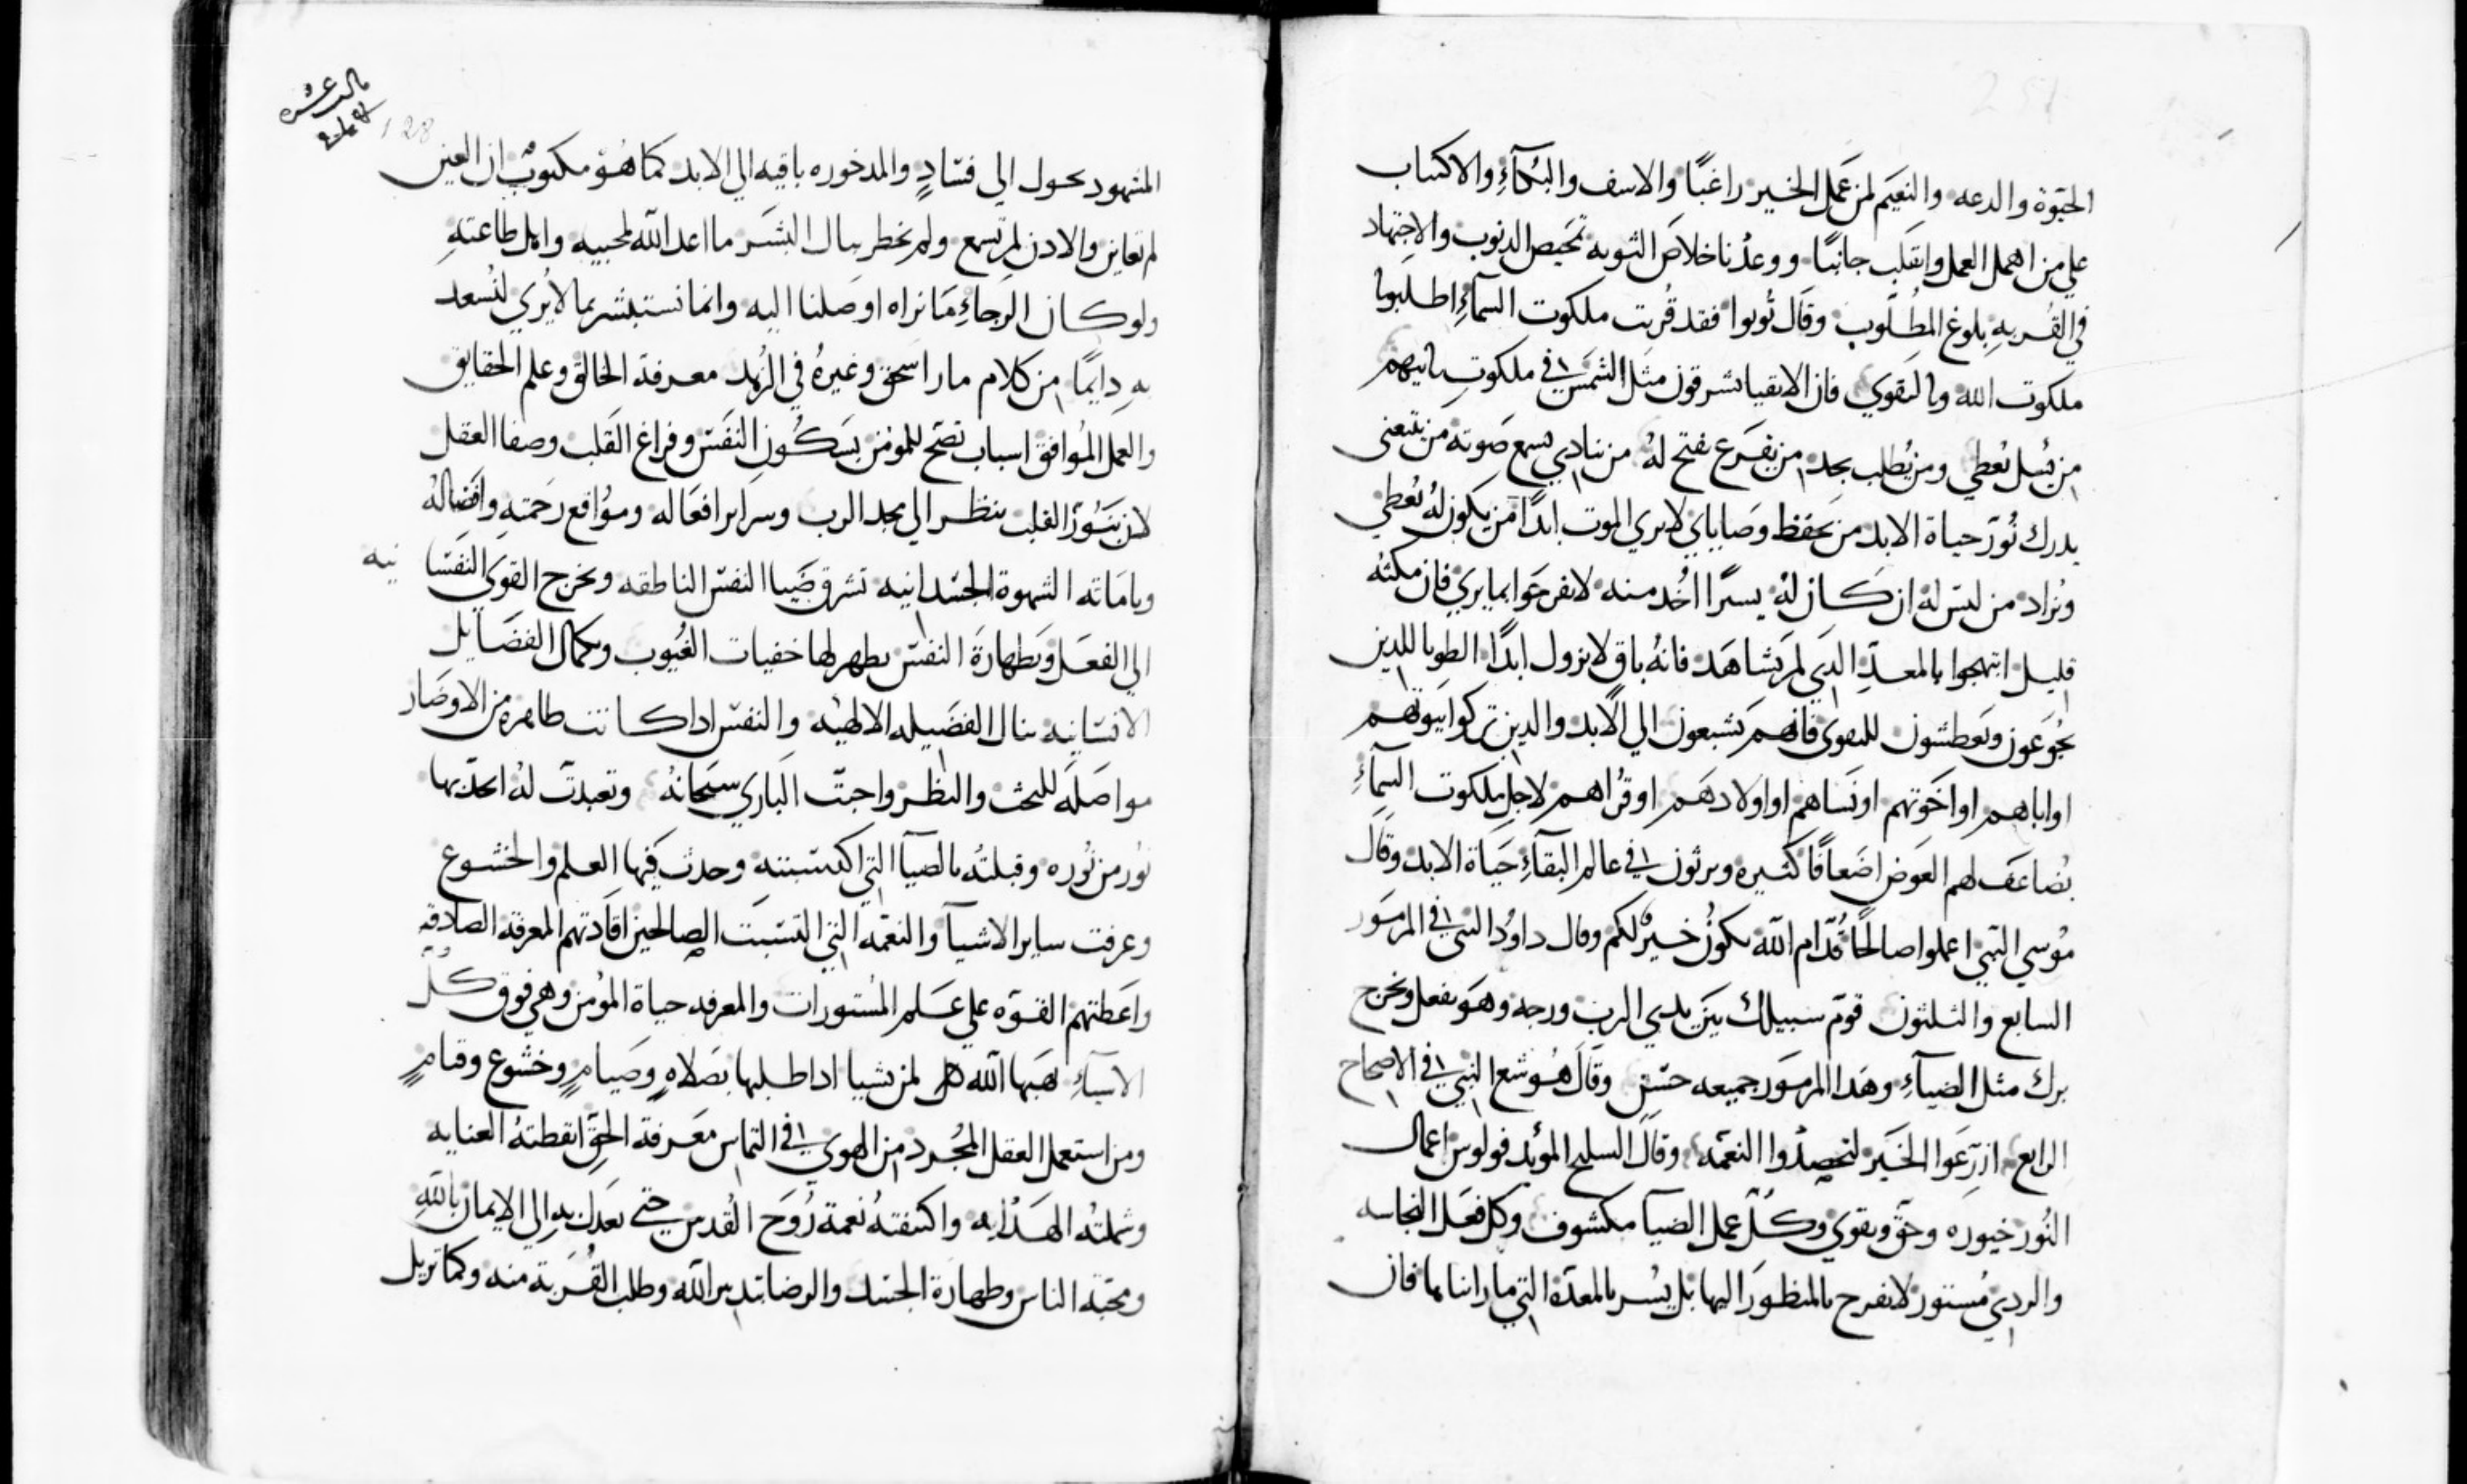 الحيوة والدعه والنعيم لمن عمل الخير راغبًا والاسف والبكآءِ والاكتياب
علي من اهمل العمل وانقلب جانبًا ووعدنا خلاص التوبه تمحيص الدنوب والاجتهاد
في القربهِ بلوغ المطلوب وقال تُوبوا فقد قُربت ملكوت السمآءِ اطلبوا
ملكوت الله والتقوي فان الاتقيا يشرقون مثل الشمس في ملكوت ابيهم
من يسل يُعطي ومن يُطلب يجد من يقرع يفتح لهُ من ينادي يسمع صوته من يتبعني
يدرك نُور حياة الابد من يحفظ وصاياي لا يري الموت ابدًا من يكون لهُ يُعطي
ويُزاد من ليس له ان كان لهُ يسرًا اُخد منه لا تفرحوا بما يري فان مكثه
قليل ابتهجوا بالمعدّ الدي لم يشاهد فانهُ باق لا يزول ابدًا الطوبا للدين
يجوعون ويعطشون للتقوي فانهم يشبعون الي الابد والدين تركوا بيوتهم
او اباهم او اخوتهم او نساهم او اولادهم او قراهم لاجل ملكوت السمآءِ
يُضاعف لهم العوض اضعافًا كثيره ويرثون في عالم البقآءِ حياة الابد وقال
مُوسي النبي اعملوا صالحًا قُدّام الله يكونُ خيرٌ لكم وقال داوُد النبي في المزمور
السابع والثلثون قوّم سبيلك بين يدي الرب ورجه وهو يفعل ويخرج
برك مثل الضيآءِ وهدا المزمور جميعه حسن وقال هُوشع النبي في الاصحاح
الرابع ازرعوا الخير لتحصدُوا النعمه وقال السليح المؤيد فولوس اعمال
النُور خيوره وحق وتقوي وكل عمل الضيا مكشوف وكل فعل النجاسه
والردي مُستور لا نفرح بالمنظور اليها بل يُسر بالمعدّة التي ما راينا بها فان
المشهود يحول الي فسادٍ والمدخوره باقيه الي الابد كما هُو مكتوبٌ ان العين
لم تعاين والادن لم تسمع ولم يخطر ببال البشر ما اعد الله لمحبيه واهل طاعتهِ
ولو كان الرجاءِ ما نراه او صلنا اليه وانما نستبشر بما لا يُري لنُسعد
بهِ دايمًا من كلام مار اسحق وغيرهُ في الزُهد معرفة الخالق وعلم الحقايق
والعمل المُوافق اسباب تصح للمومن بسكُون النفس وفراغ القلب وصفا العقل
لان بنُور القلب ينظر الي مجد الرب وسراير افعاله ومواقع رحمته وافضالهُ
وباماته الشهوة الجسدانيه تشرق ضيا النفس الناطقه ويخرج القوي النفسا نيه
الي الفعل وبطهارة النفس يظهر لها خفيات الغُيوب وبكمال الفضايل
الانسانيه ينال الفضيله الالهيه والنفس ادا كانت طاهره من الاوضار
مواصله للبحث والنظر واحبّت الباري سبحانهُ وتعبدت لهُ اتحد بها
نُور من نُوره وقبلته بالضيا التي اكتسبته وحدث فيها العلم والخشوع
وعرفت ساير الاشيا والنعمه التي اكتسبت الصالحين افادتهم المعرفه الصادقه
واعطتهم القوّه علي علم المُستورات والمعرفه حياة المُومن وهي فوق كُل
الاشياءِ يهبها الله لمن يشيا ادا طلبها بصلاهٍ وصيامٍ وخشوع وقيامٍ
ومن استعمل العقل المجُرد من الهوي في التماس معرفة الحق ايقظتهُ العنايه
وشملتُه الهدايه واكتنفتهُ نعمة رُوح القُدس حتي تعدل بهِ الي الايمان باللهِ
ومحبّة الناس وطهارة الجسد والرضا بتدبير الله وطلب القُربة منه وكما تزيل